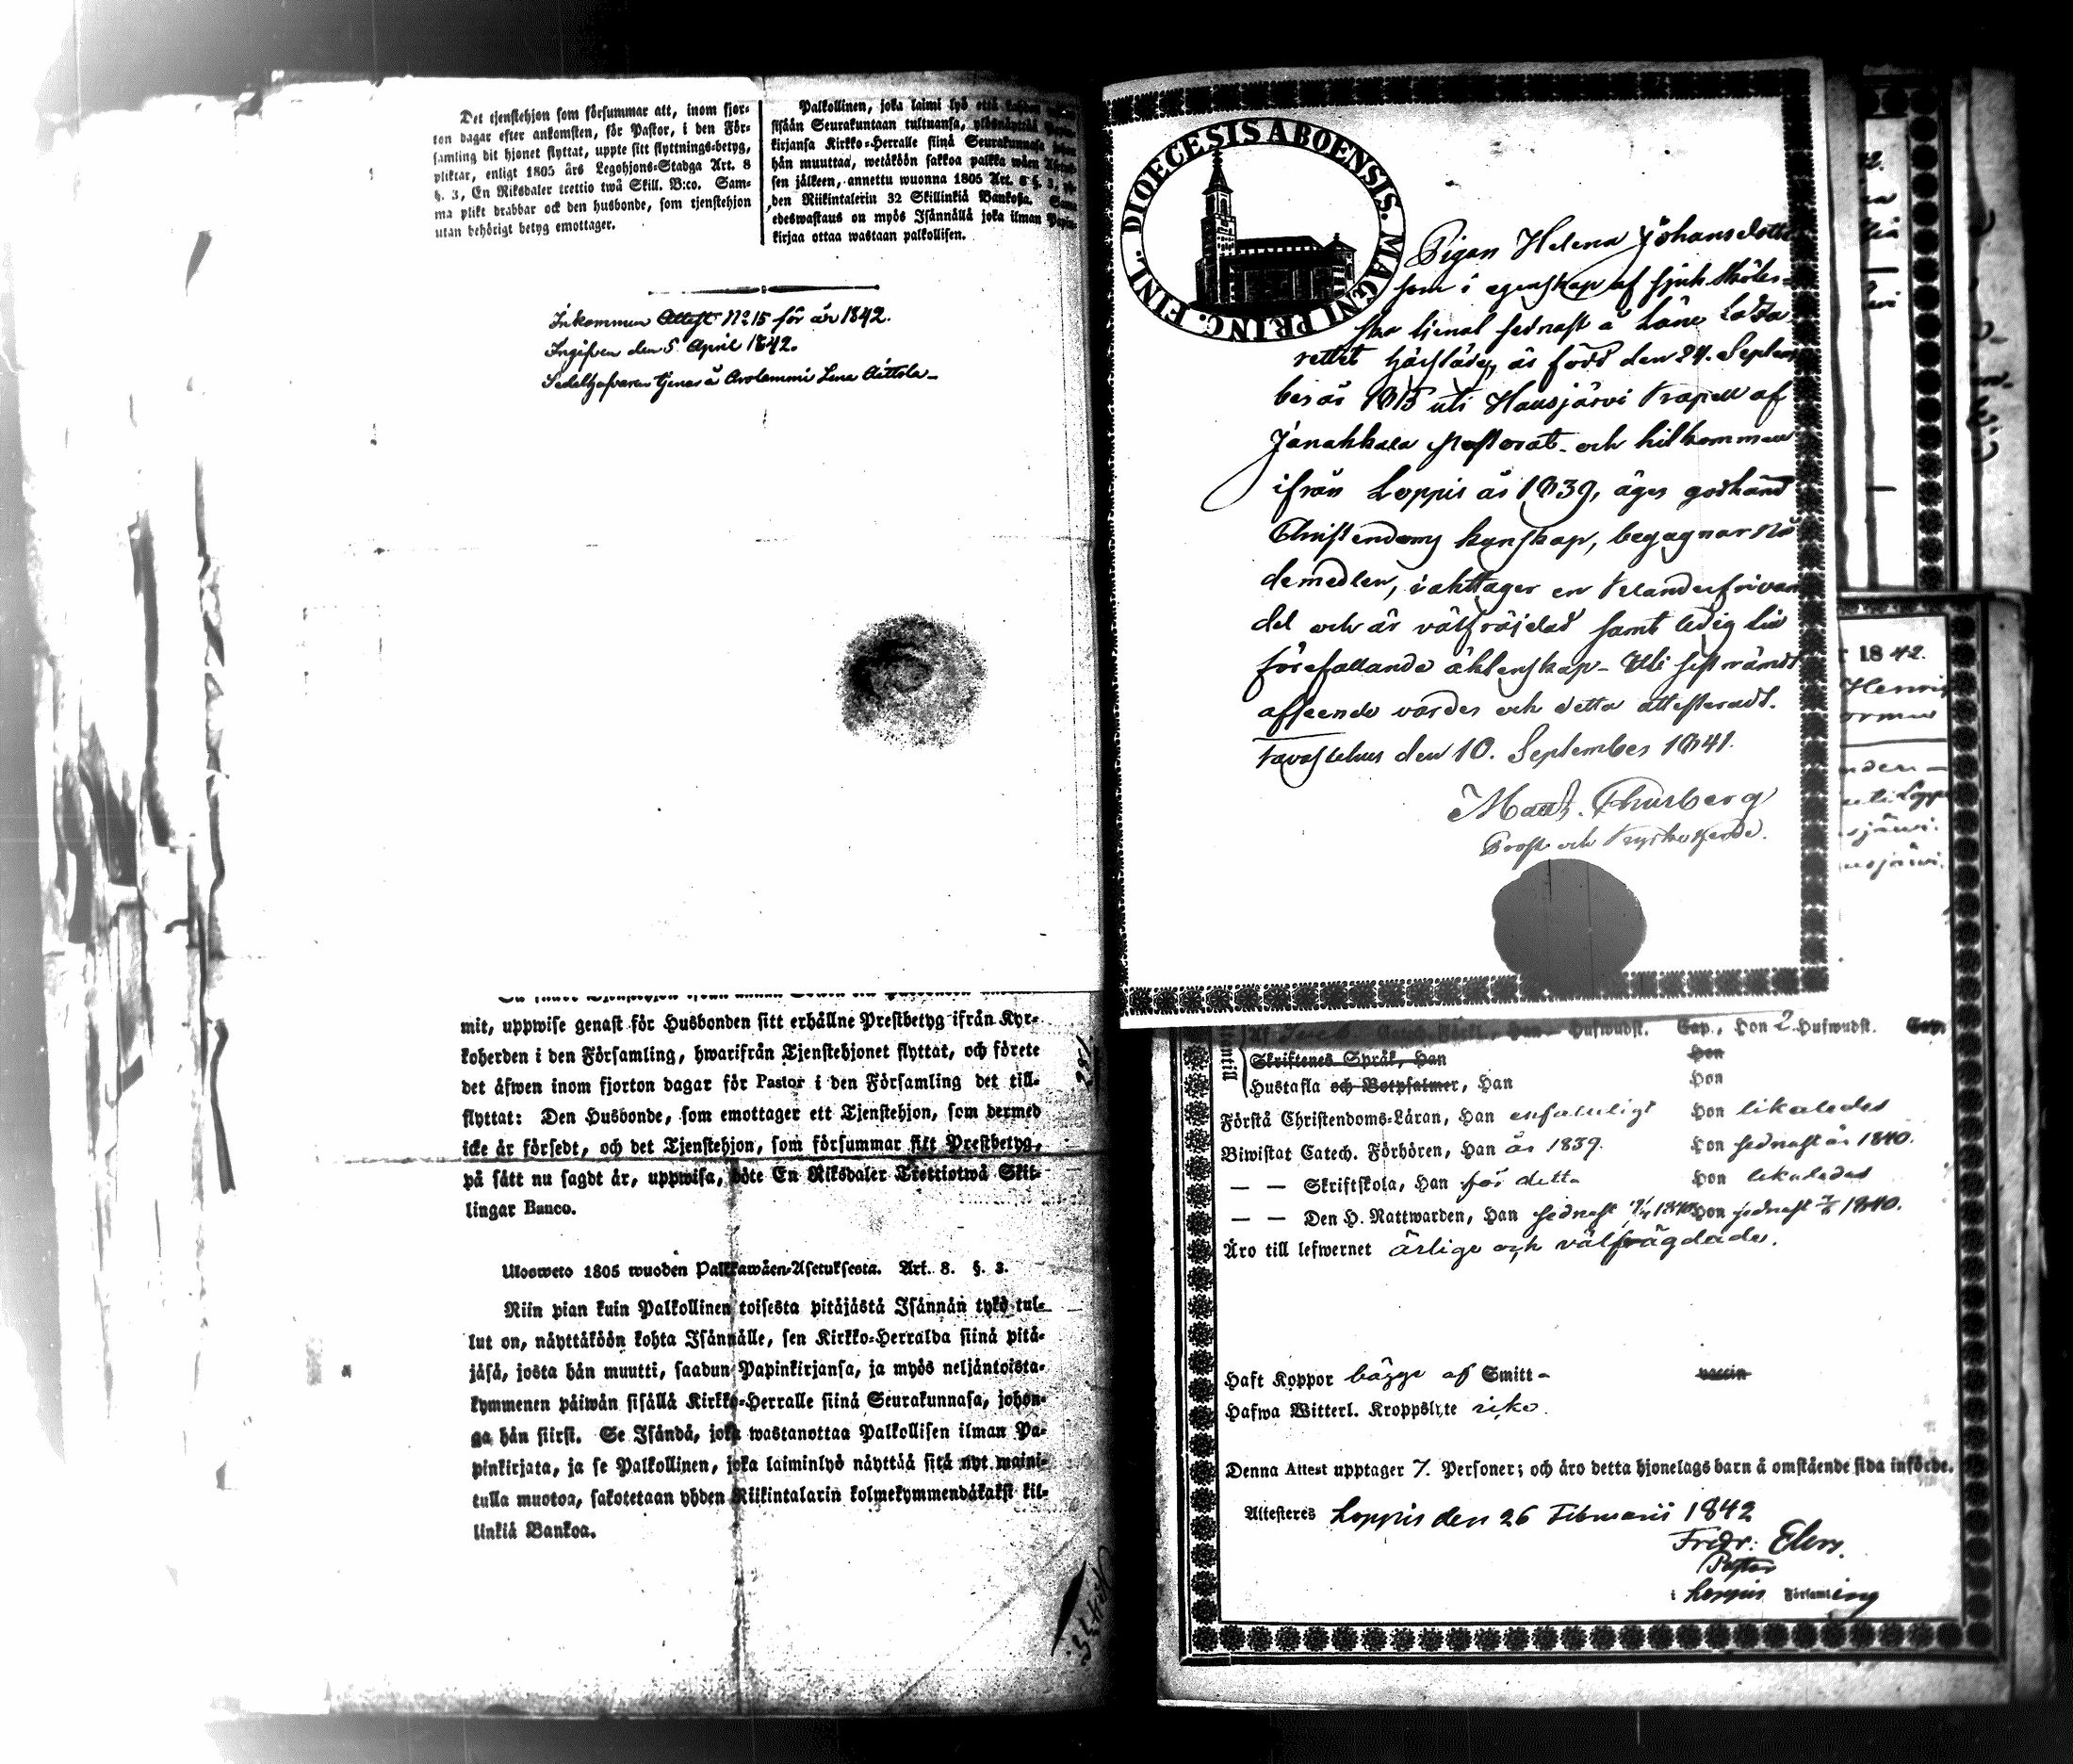 Det tjenstehjon som försummar att, inom fjor-
ton dagar efter ankomsten, för Pastor, i den För-
samling dit hjonet flyttat, uppte sitt flyttnings-betyg,
pliktar, enligt 1805 års Legohjons-Stadga Art. 8
§. 3, En Riksdaler trettio twå Skill. B:co. Sam-
ma plikt drabbar ock den husbonde, som tjenstehjon
utan behörigt betyg emottager.
Palkollinen, joka laimi lyö että
sisään Seurakuntaan tultuansa, ylösnäyttää
kirjansa Kirkko-Herralle siinä Seurakunnasa
hän muuttaa, wetäköön sakkoa palkka wäen
sen jälkeen, annettu wuonna 1805 Art. 8 §. 3,
den Riikintalerin 32 Skillinkiä Bankosa.
edeswastaus on myös Isännällä joka ilman Papin-
kirjaa ottaa wastaan palkollisen.
Inkommen Attest No 15 för år 1842.
Ingifven den 5 April 1842.
Sedelhafvaren tjenar å Arolammi Lena Aittola
mit, uppwise genast för Husbonden sitt erhållne Prestbetyg ifrån Kyr-
koherden i den Församling, hwarifrån Tjenstehjonet flyttat, och förete
det äfwen inom fjorton dagar för Pastor i den Församling det till-
flyttat: Den Husbonde, som emottager ett Tjenstehjon, som dermed
icke är försedt, och det Tjenstehjon, som försummar sitt Prestbetyg,
på sätt nu sagdt är, uppwisa, böte En Riksdaler Trettiotwå Skil-
lingar Banco.
Ulosweto 1805 wuoden Palkkawäen-Asetuksesta. Art. 8. §. 3.
Niin pian kuin Palkollinen toisesta pitäjästä Isännän tykö tul-
lut on, näyttäköön kohta Isännälle, sen Kirkko-Herralda siinä pitä-
jäsä, josta hän muutti, saadun Papinkirjansa, ja myös neljäntoista-
kymmenen päiwän sisällä Kirkko-Herralle siinä Seurakunnasa, johon-
ga hän siirsi. Se Isändä, joka wastanottaa Palkollisen ilman Pa-
pinkirjata, ja se Palkollinen, joka laiminlyö näyttää sitä nyt maini-
tulla muotoa, sakotetaan yhden Riikintalarin kolmekymmendäkaksi kil-
linkiä Bankoa.
DIOECESIS ABOENSIS. MAGNI PRINC. FINL.
Pigan Helena Johansdotter
som i egenskap af sjuk sköter-
ska tjenat sednast å Läne Laza
rettet härstädes, är född den 24. Septem
ber år 1815 uti Hausjärvi Kapell af
Janakkala Pastorat och hitkommen
ifrån Loppis år 1839, äger godkänd
Christendoms kunskap, begagnar nå
demedlen, iakttager en klanderfri van
del och är välfräjdad samt ledig till
förefallande äktenskap. Uti sistnämdt
afseende varder och detta attesteradt.
Tavastehus den 10. September 1841.
Math. Thurberg
Prost och Kyrkoherde.
Catech. Förkl., Han Hufwudst. Cap., Hon 2 Hufwudst. Cap.
Skriftenes Språk, Han Hon
Hustafla och Botpsalmer, Han Hon
Första Christendoms-Läran, Han enfaldeligt Hon likaledes
Biwistat Catech. Förhören, Han år 1839. Hon sednast år 1840.
— — Skriftskola, Han för detta Hon likaledes
— — Den H. Nattwarden, Han sednast 1840 Hon sednast 1840.
Äro till lefwernet ärlige och välfrägdade.
Haft Koppor bägge af Smitt- vaccin
Hafwa Witterl. Kroppslyte
Denna Attest upptager 7. Personer; och äro detta hjonelags barn å omstående sida införde.
Attesteres Loppis den 26 Februarii 1842
Fredr: Elers.
Pastor
i Loppis Församling
1842.
Henric